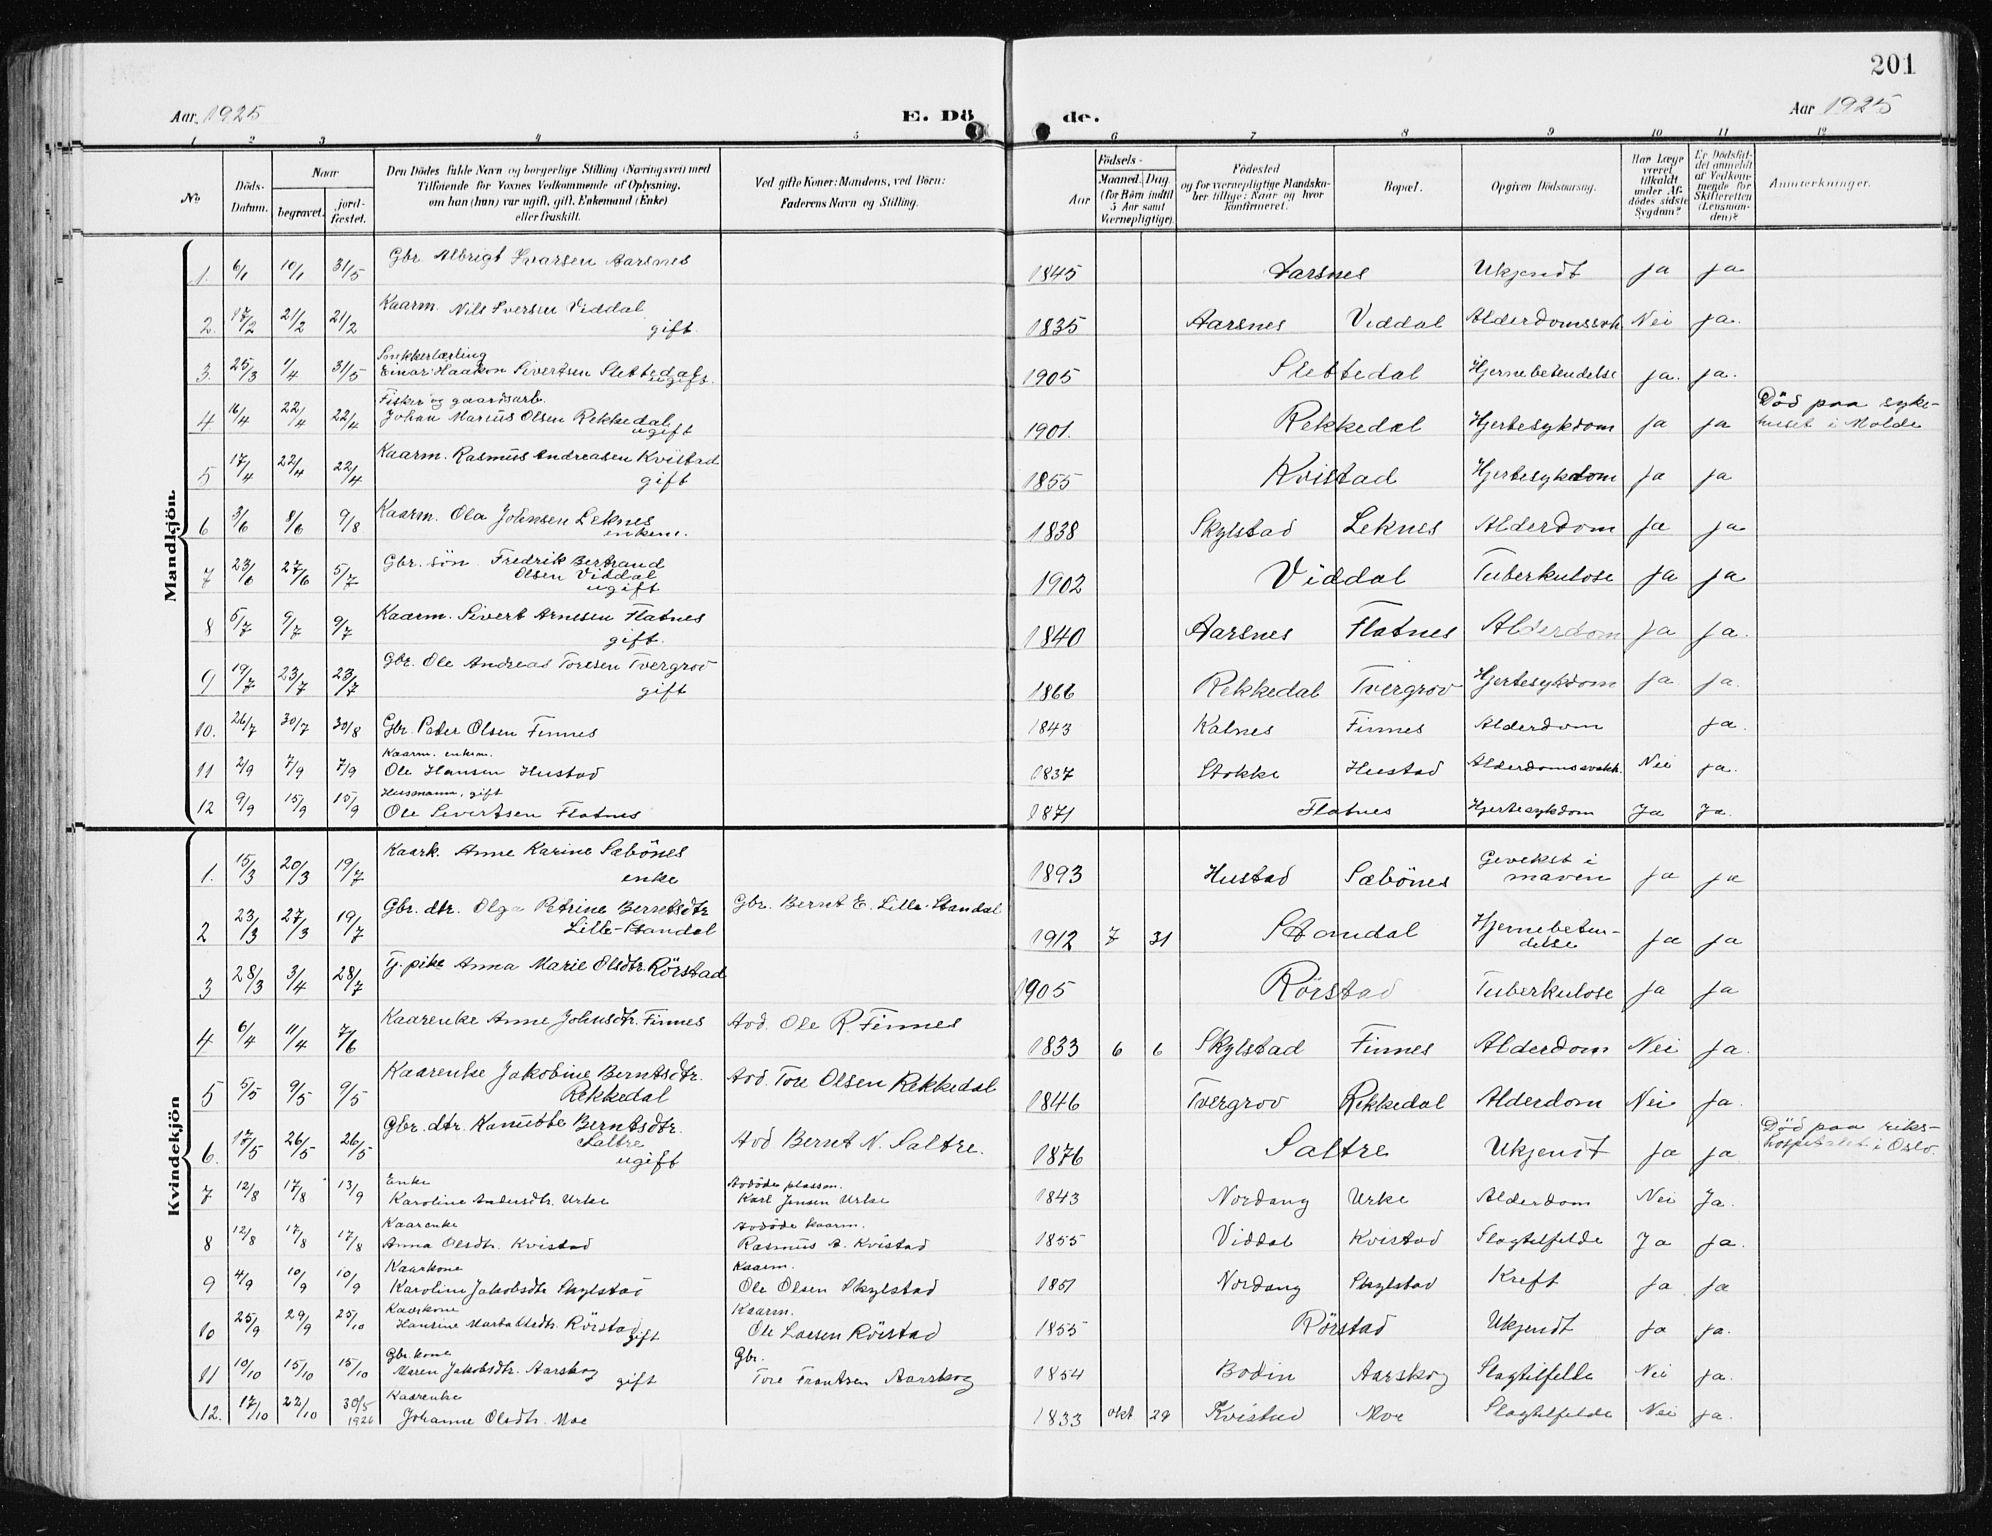 201
Aar 1925 E. Dö de. Aar 1925
1 2 3 4 5 6 7 8 9 10 11 12
No
Döds-Datum.
Naar
begravet.
jord-fæstet.
Den Dödes fulde Navn og borgerlige Stilling (Næringsvei) med
Tilföiende for Voxnes Vedkommende af Oplysning,
om han (hun) var ugift, gift, Enkemand (Enke)
eller fraskilt.
Ved gifte Koner: Mandens, ved Börn:
Faderens Navn og Stilling.
Födsels-
Aar
Maaned. Dag.
(for Börn indtil
5 Aar samt
Værnepligtige).
Födested
og for værnepligtige Mandska-
ber tillige: Naar og hvor
konfirmeret.
Bopæl.
Opgiven Dödsaarsag.
Har Læge
været
tilkaldt
under Af-
dödes sidste
Sygdom?
Er Dödsfal-
det anmeldt
af Vedkom-
mende for
Skifteretten
(Lensman-
den)?
Anmærkninger.
Mandkjön.
1. 6/1 10/1 31/5 Gbr. Albrigt Ivarsen Aarsnes 1845 Aarsnes Ukjendt Ja Ja
2. 17/2 21/2 21/2 Kaarm. Nils Iversen Viddal
gift. 1835 Aarsnes Viddal Alderdomssvk. Nei Ja.
3. 25/3 1/4 31/5 Snekkerlærling
Einar Haakon Sivertsen Slettedal
ugift. 1905 Slettedal Hjernebetendelse Ja. Ja.
4 16/4 22/4 22/4 Fisker og gaardsarb.
Johan Marius Olsen Rekkedal
ugift 1901. Rekkedal Hjertesykdom Ja Ja Död paa syke-
huset i Molde
5 17/4 22/4 22/4 Kaarm. Rasmus Andreasen Kvistad
gift 1855 Kvistad Hjertesykdom Ja Ja
6 3/6 8/6 9/8 Kaarm. Ola Johnsen Leknes
enkem. 1838 Skylstad Leknes Alderdom Ja Ja
7 23/6 27/6 5/7 Gbr. sön Fredrik Bertrand
Olsen Viddal
ugift 1902 Viddal Tuberkulose Ja Ja
8 5/7 9/7 9/7 Kaarm. Sivert Arnesen Flatnes
gift. 1840 Aarsnes Flatnes Alderdom Ja Ja.
9 19/7 23/7 23/7 Gbr. Ole Andreas Toresen Tvergrov
gift 1866 Rekkedal Tvergrov Hjertesykdom Ja Ja.
10. 26/7 30/7 30/8 Gbr. Peter Olsen Finnes 1843 Kalnes Finnes Alderdom Ja.
11 2/9 7/9 7/9 Kaarm. enkem.
Ole Hansen Hustad 1837 Stokke Hustad Alderdomssvakh. Nei Ja.
12 9/9 15/9 15/9 Husmann, gift
Ole Sivertsen Flatnes 1871 Flatnes Hjertesykdom Ja Ja.
Kvindekjön
1. 15/3 20/3 19/7 Kaark. Anne Karine Sæbönes
enke 1893 Hustad Sæbönes Gevekst i
maven Ja Ja
2 23/3 27/3 19/7 Gbr. dtr. Olga Petrine Berntsdtr
Lille-Standal Gbr. Bernt E. Lille-Standal 1912 7 31 Standal Hjernebeten-
delse Ja Ja
3 28/3 3/4 28/7 Tj. pike Anna Marie Olsdtr. Rörstad 1905 Rörstad Tuberkulose Ja Ja
4 6/4 11/4 7/6 Kaarenke Anne Johnsdtr. Finnes Avd. Ole R. Finnes 1833 6 6 Skylstad Finnes Alderdom Nei Ja.
5 5/5 9/5 9/5 Kaarenke Jakobine Berntsdtr.
Rekkedal Avd. Tore Olsen Rekkedal 1846 Tvergrov Rekkedal Alderdom Nei Ja.
6. 17/5 26/5 26/5 Gbr. dtr. Kanutte Berntsdtr.
Saltre
ugift Avd Bernt N. Saltre. 1876 Saltre Ukjendt Ja Ja Död paa riks-
hospitalet i Oslo.
7 12/8 17/8 13/9 Enke
Karoline Andersdtr. Urke Avdöde plassm.
Karl Jensen Urke 1843 Nordang Urke Alderdom Nei Ja.
8 12/8 17/8 17/8 Kaarenke
Anna Olsdtr. Kvistad Avdöde kaarm.
Rasmus A. Kvistad 1855 Viddal Kvistad Slagtilfelde Ja Ja.
9 4/9 10/9 10/9 Kaarkone
Karoline Jakobsdtr Skylstad Kaarm.
Ole Olsen Skylstad 1851 Nordang Skylstad Kreft Ja Ja
10 25/9 29/9 25/10 Kaarkone
Hansine Rörstad
gift Kaarm.
Ole Larsen Rörstad 1855 Rörstad Ukjendt Ja Ja.
11 10/10 15/10 15/10 Gbr. kone
Maren Jakobsdtr. Aarskog
gift Gbr.
Tore Frantsen Aarskog 1854 Bodin Aarskog Slagtilfelde Nei Ja.
12. 17/10 22/10 30/5 1926 Kaarenke
Johanne Olsdtr. Moe 1833 okt 29 Kvistad Moe Slagtilfelde Nei Ja.